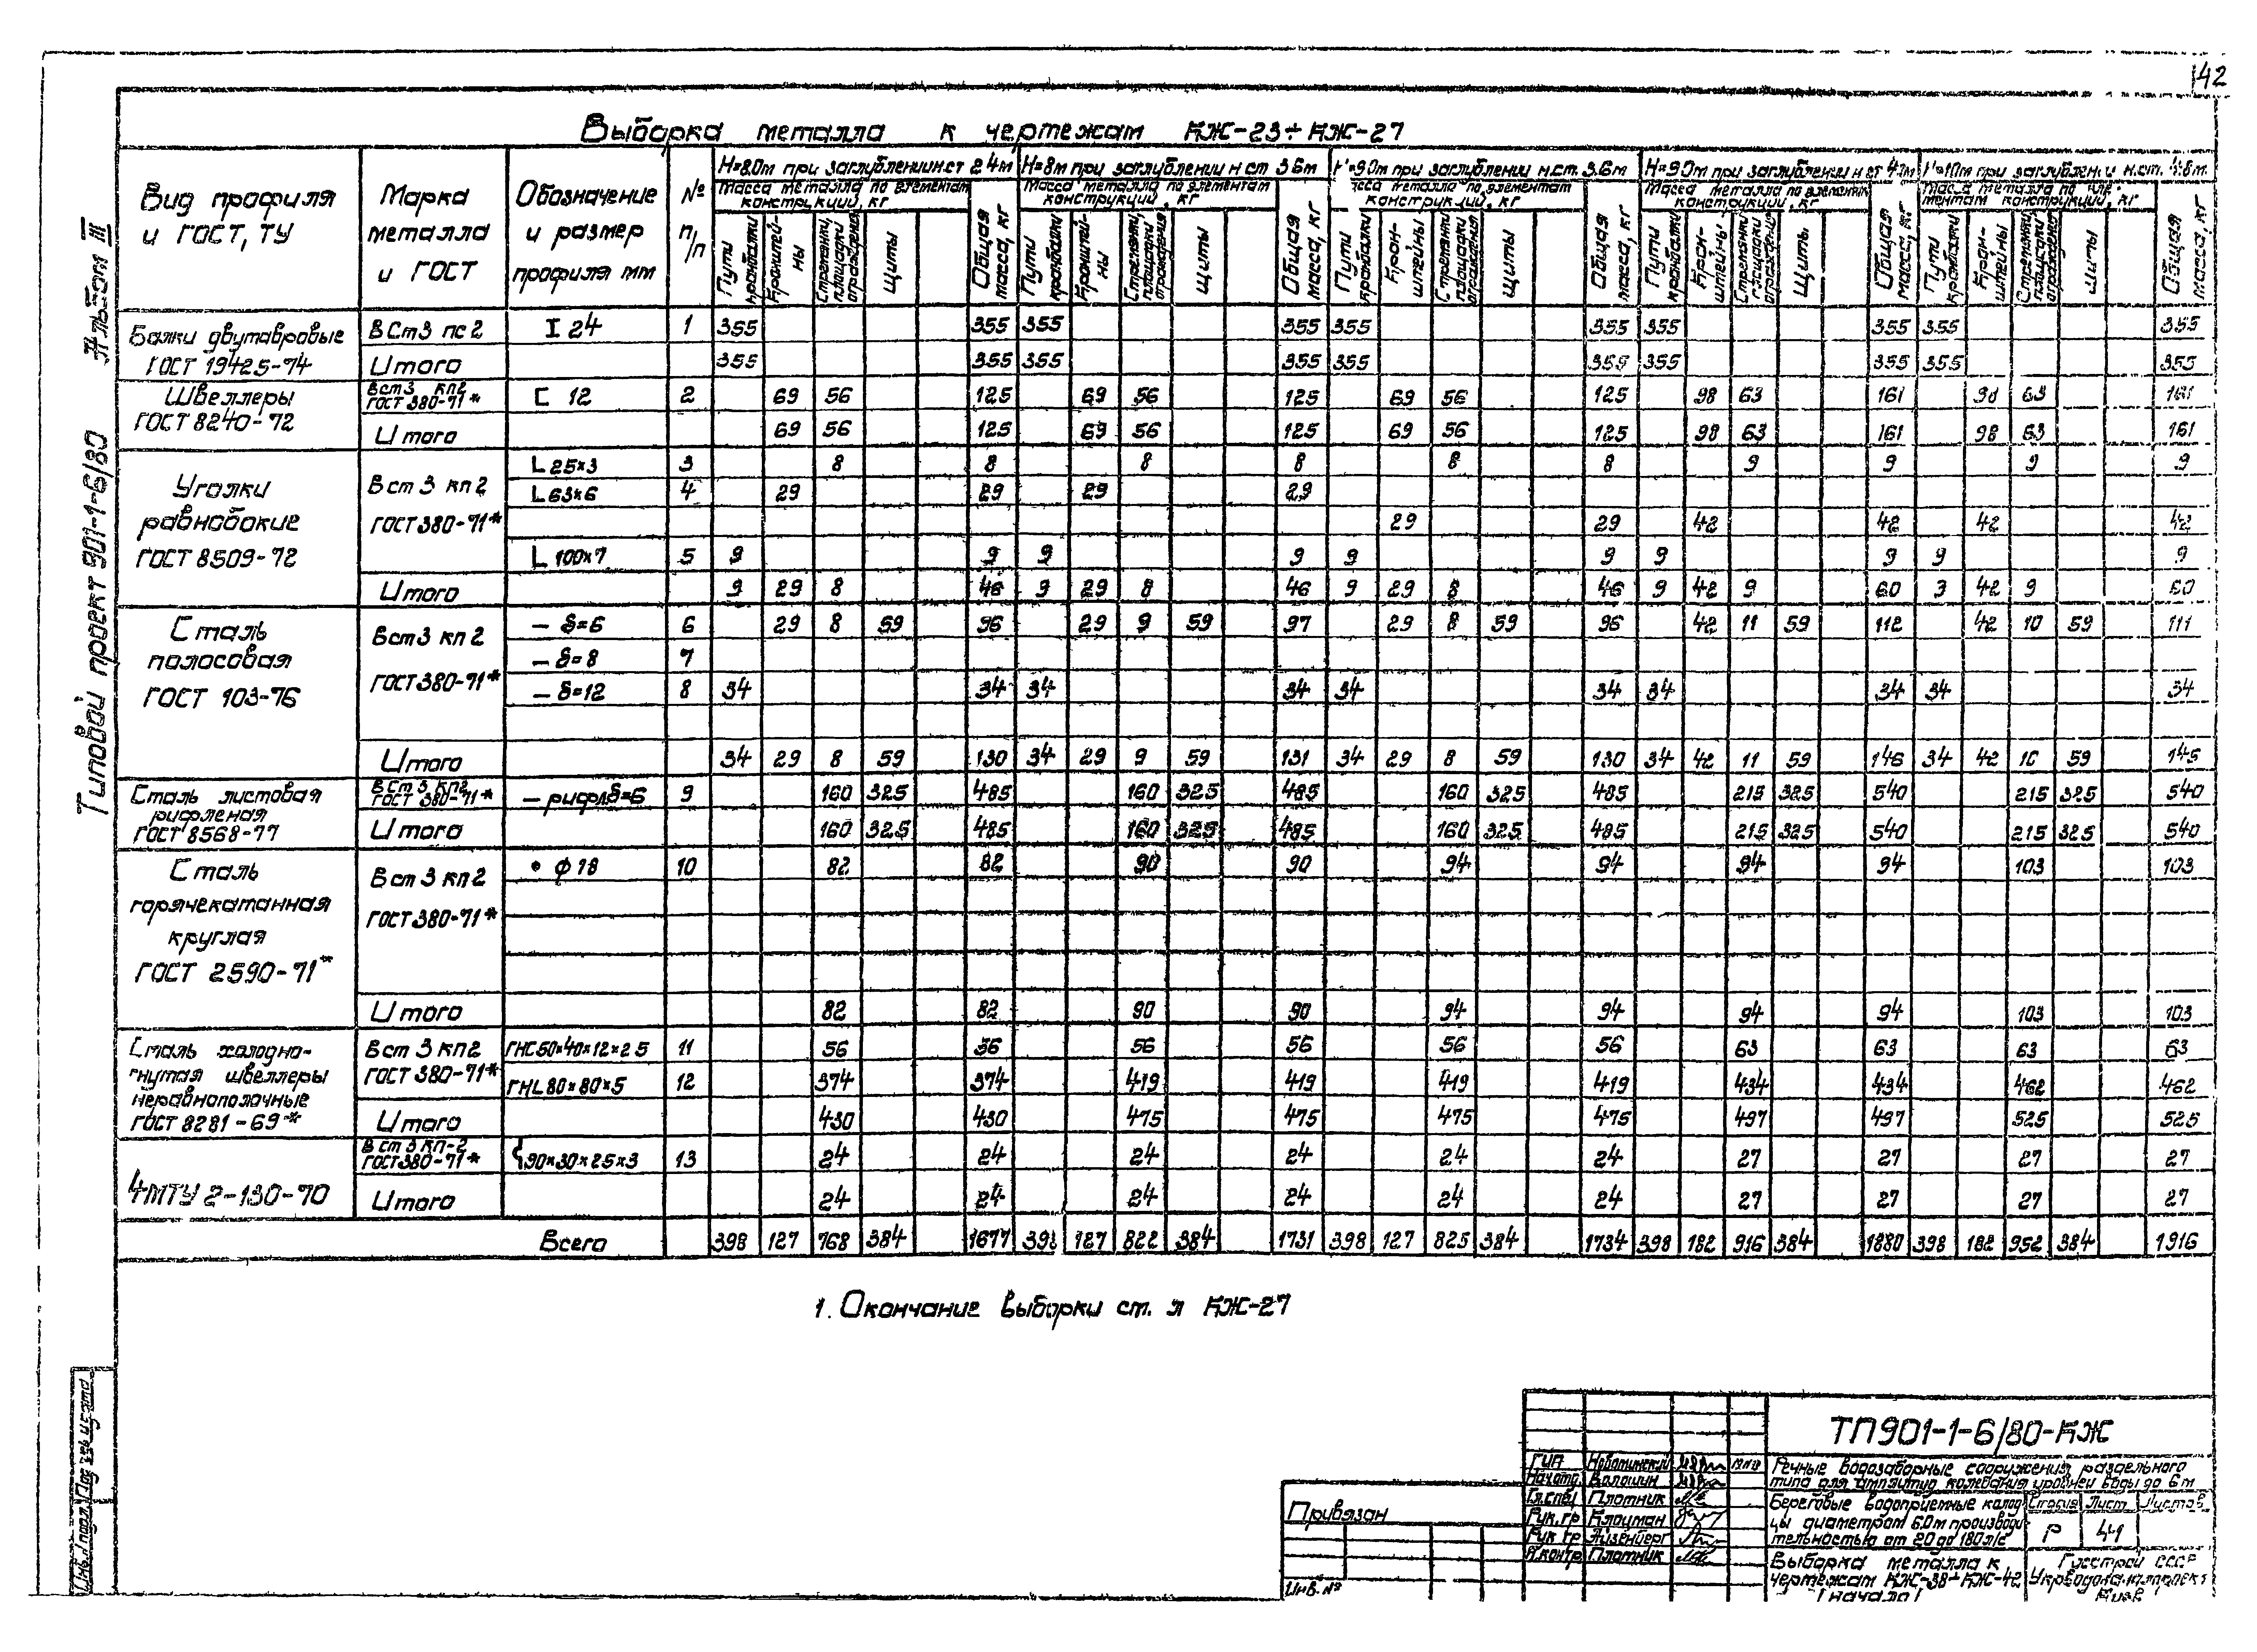 42
Выборка металла к чертежам КЖ-23÷КЖ-27
Альбом III
Типовой проект 901-1-6/80
Вид профиля и ГОСТ, ТУ
Марка металла и ГОСТ
Обозначение и размер профиля мм
№ п/п
H=8.0м при заглублении н.ст 2.4м
H=8м при заглублении н ст 3.6м
H=9.0м при заглублении н.ст. 3.6м
H=9.0м при заглублении н ст 4.8м
H=10м при заглублении н.ст. 4.8м.
Масса металла по элементам конструкций, кг
Общая масса, кг
Пути кранбалки
Кронштейны
Стремянки, площадки ограждения
Щиты
Балки двутавровые ГОСТ 19425-74
ВСт3 пс2 I 24 1 355 355 355 355 355 355 355 355 355 355
Итого 355 355 355 355 355 355 355 355 355 355
Швеллеры ГОСТ 8240-72
Вст3 кп2 ГОСТ 380-71* [ 12 2 69 56 125 69 56 125 69 56 125 98 63 161 98 63 161
Итого 69 56 125 69 56 125 69 56 125 98 63 161 98 63 161
Уголки равнобокие ГОСТ 8509-72
Вст3 кп2 ГОСТ 380-71*
L 25×3 3 8 8 8 8 8 8 9 9 9 9
L 63×6 4 29 29 29 29
29 29 42 42 42 42
L 100×7 5 9 9 9 9 9 9 9 9 9 9
Итого 9 29 8 46 9 29 8 46 9 29 8 46 9 42 9 60 9 42 9 60
Сталь полосовая ГОСТ 103-76
Вст3 кп2 ГОСТ 380-71*
— δ=6 6 29 8 59 96 29 9 59 97 29 8 59 96 42 11 59 112 42 10 59 111
— δ=8 7
— δ=12 8 34 34 34 34 34 34 34 34 34 34
Итого 34 29 8 59 130 34 29 9 59 131 34 29 8 59 130 34 42 11 59 146 34 42 10 59 145
Сталь листовая рифленая ГОСТ 8568-77
Вст3 кп2 ГОСТ 380-71* — рифл.δ=6 9 160 325 485 160 325 485 160 325 485 215 325 540 215 325 540
Итого 160 325 485 160 325 485 160 325 485 215 325 540 215 325 540
Сталь горячекатанная круглая ГОСТ 2590-71*
Вст3 кп2 ГОСТ 380-71*
• ф18 10 82 82 90 90 94 94 94 94 103 103
Итого 82 82 90 90 94 94 94 94 103 103
Сталь холодногнутая швеллеры неравнополочные ГОСТ 8281-69*
Вст3 кп2 ГОСТ 380-71*
ГНС60×40×12×2.5 11 56 56 56 56 56 56 63 63 63 63
ГНL80×80×5 12 374 374 419 419 419 419 434 434 462 462
Итого 430 430 475 475 475 475 497 497 525 525
4МТУ 2-130-70
Вст3 кп-2 ГОСТ 380-71* 90×30×25×3 13 24 24 24 24 24 24 27 27 27 27
Итого 24 24 24 24 24 24 27 27 27 27
Всего 398 127 768 384 1677 398 127 822 384 1731 398 127 825 384 1734 398 182 916 384 1880 398 182 952 384 1916
1. Окончание выборки ст. л КЖ-27
Инв.№ подл. Под
Привязан
Инв. №
ГИП
Нач.отд. Волошин
Гл.спец Плотник
Рук.гр Клоцман
Рук гр Айзенберг
Н.контр Плотник
ТП901-1-6/80-КЖ
Речные водозаборные сооружения раздельного
типа для амплитуд колебания уровней воды до 6м
Береговые водоприемные колод
цы диаметром 6.0м производи
тельностью от 20 до 180 л/с
Стадия Лист Листов
Р 44
Выборка металла к
чертежам КЖ-38÷КЖ-42
(начало)
Госстрой СССР
Укрводоканалпроект
Киев